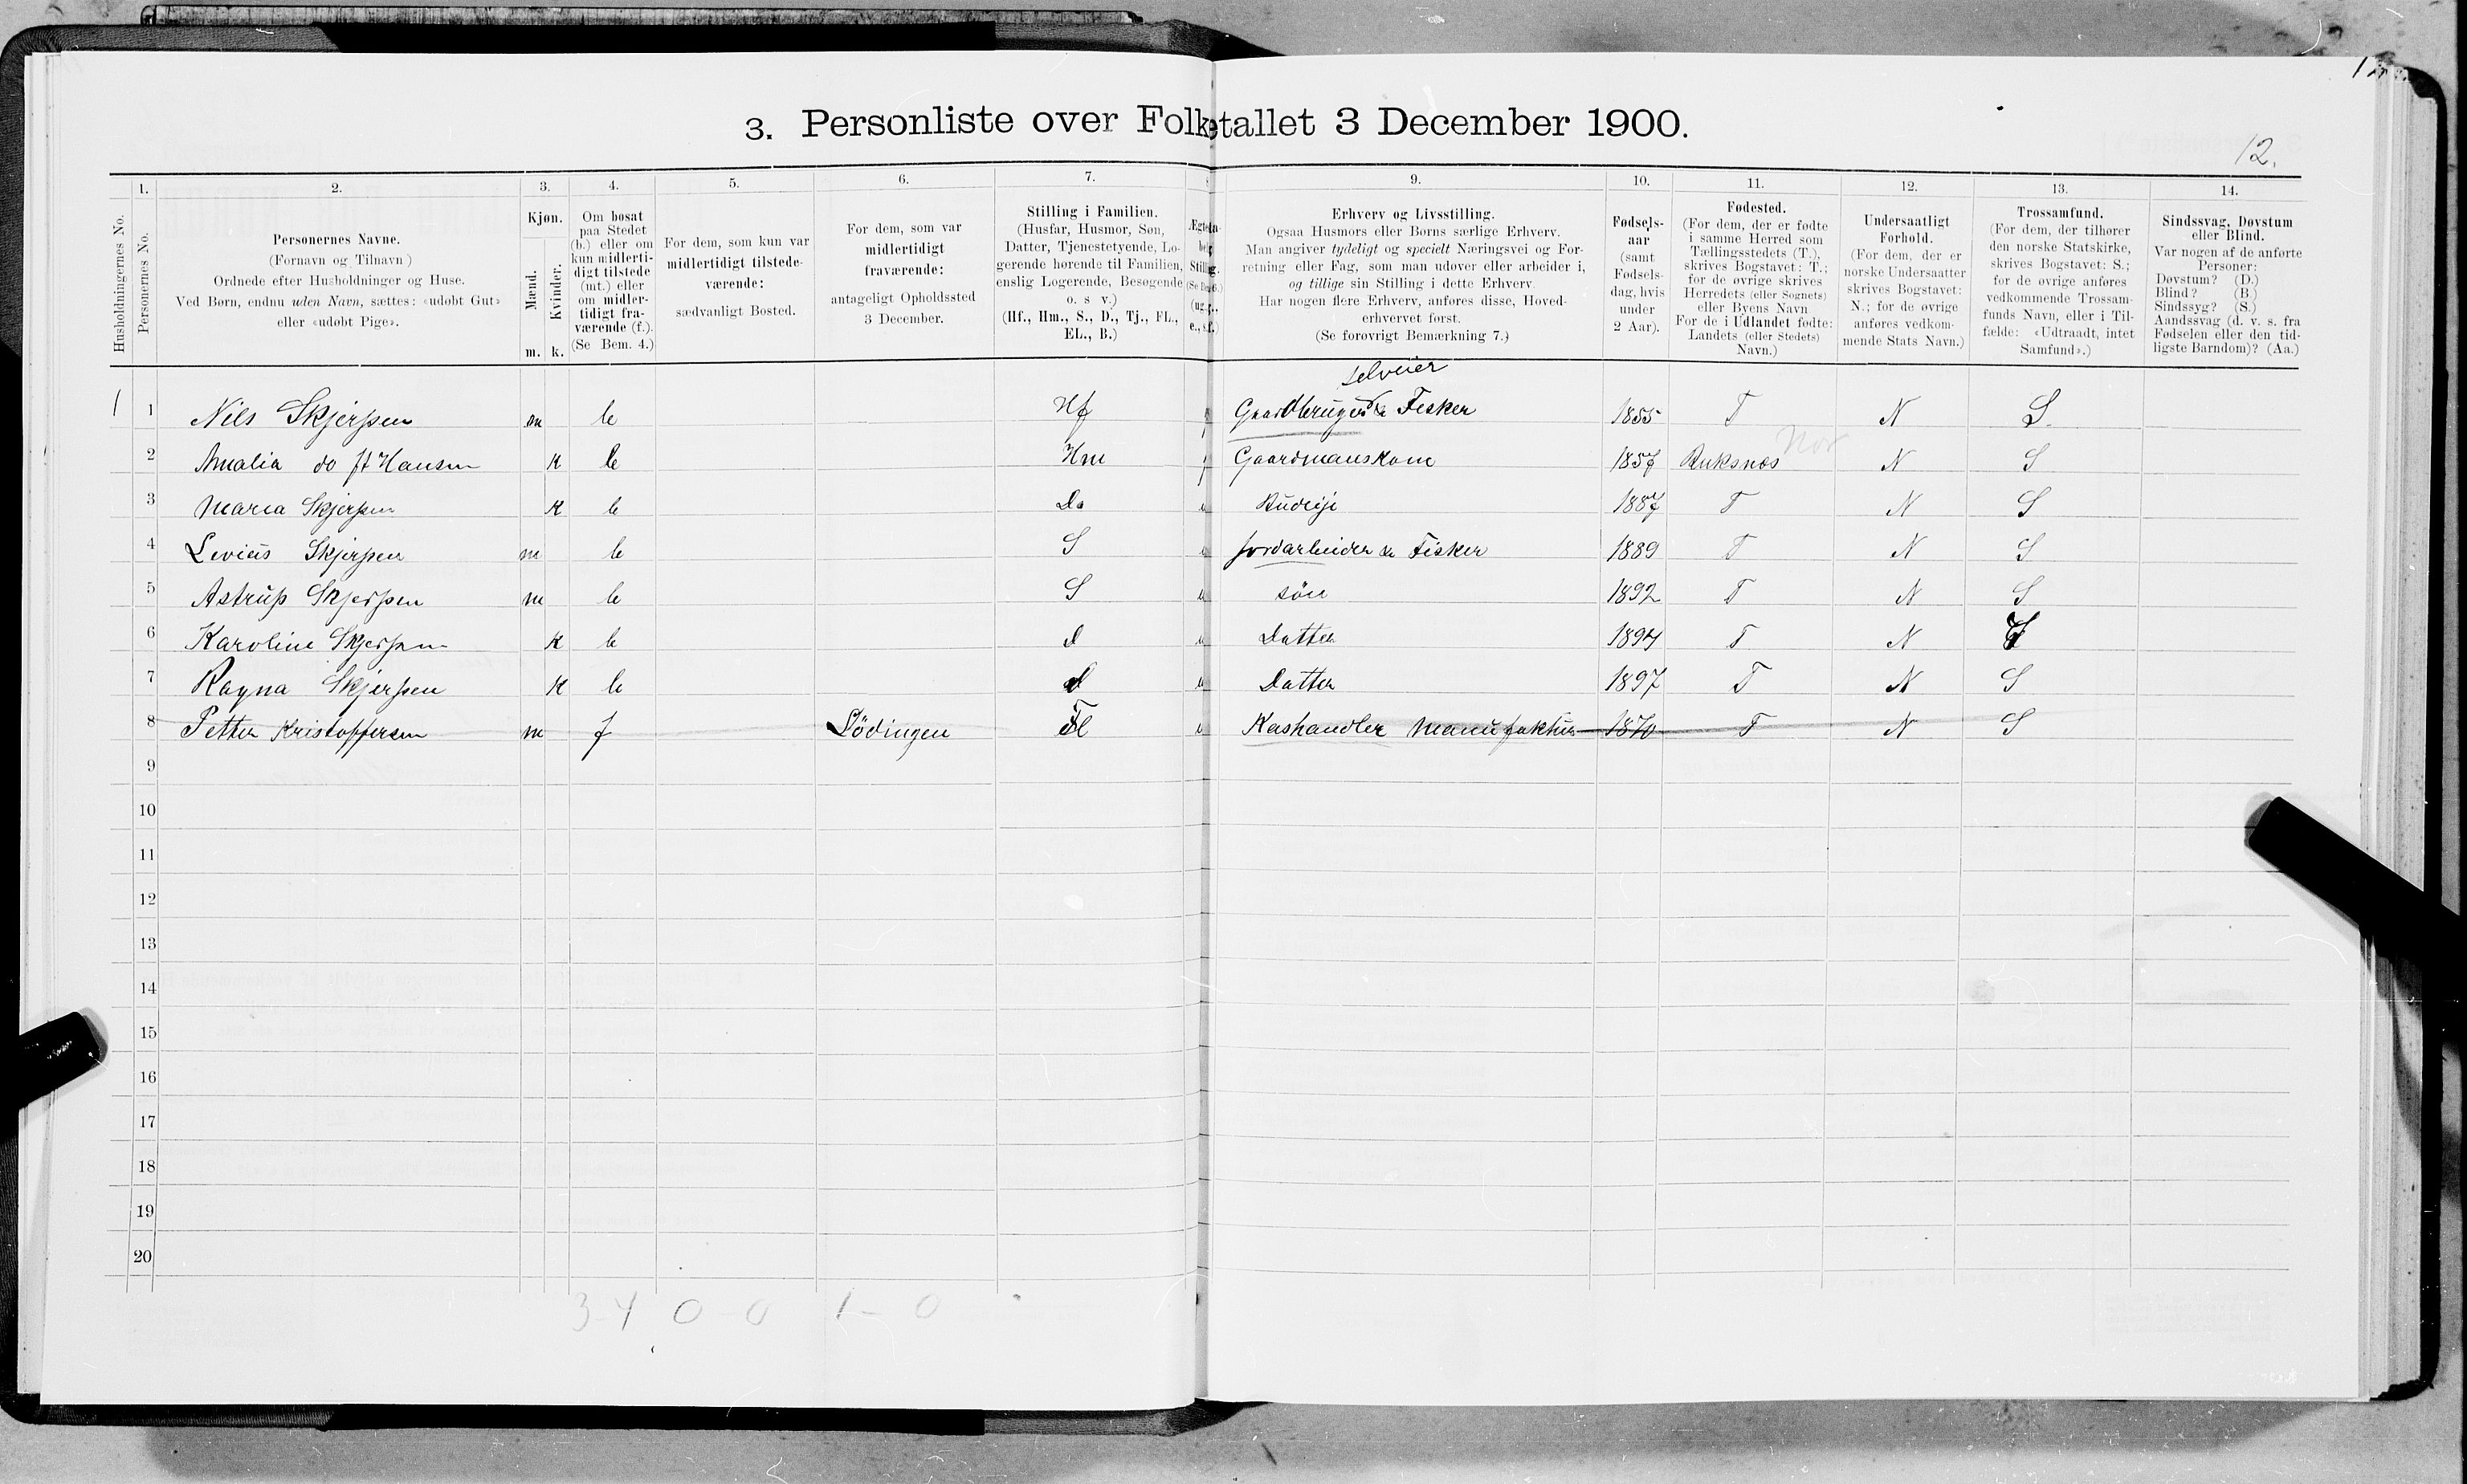 3. Personliste over Folketallet 3 December 1900.
12.
1. 2. 3. 4. 5. 6. 7. 9. 10. 11. 12. 13. 14.
Husholdningernes No.
Personernes No.
Personernes Navne.
(Fornavn og Tilnavn)
Ordnede efter Husholdninger og Huse.
Ved Børn, endnu uden Navn, sættes: «udøbt Gut»
eller «udøbt Pige».
Kjøn.
Mænd.
Kvinder.
m. k.
Om bosat
paa Stedet
(b.) eller om
kun midlerti-
digt tilstede
(mt.) eller
om midler-
tidigt fra-
værende (f.).
(Se Bem. 4.)
For dem, som kun var
midlertidigt tilstede-
værende:
sædvanligt Bosted.
For dem, som var
midlertidigt
fraværende:
antageligt Opholdssted
3 December.
Stilling i Familien.
(Husfar, Husmor, Søn,
Datter, Tjenestetyende, Lo-
gerende hørende til Familien,
enslig Logerende, Besøgende
o. s v.)
(Hf., Hm., S., D., Tj., FL.,
EL., B.)
Erhverv og Livsstilling.
Ogsaa Husmors eller Børns særlige Erhverv.
Man angiver tydeligt og specielt Næringsvei og For-
retning eller Fag, som man udøver eller arbeider i,
og tillige sin Stilling i dette Erhverv.
Har nogen flere Erhverv, anføres disse, Hoved-
erhvervet først.
(Se forøvrigt Bemærkning 7.)
Fødsels-
aar
(samt
Fødsels-
dag, hvis
under
2 Aar).
Fødested.
(For dem, der er fødte
i samme Herred som
Tællingsstedets (T.),
skrives Bogstavet: T.;
for de øvrige skrives
Herredets (eller Sognets)
eller Byens Navn
For de i Udlandet fødte:
Landets (eller Stedets)
Navn.)
Undersaatligt
Forhold.
(For dem, der er
norske Undersaatter
skrives Bogstavet:
N.; for de øvrige
anføres vedkom-
mende Stats Navn.)
Trossamfund.
(For dem, der tilhører
den norske Statskirke,
skrives Bogstavet: S.;
for de øvrige anføres
vedkommende Trossam-
funds Navn, eller i Til-
fælde: «Udtraadt, intet
Samfund».)
Sindssvag, Døvstum
eller Blind.
Var nogen af de anførte
Personer:
Døvstum? (D.)
Blind? (B.)
Sindssyg? (S.)
Aandssvag (d. v. s. fra
Fødselen eller den tid-
ligste Barndom)? (Aa.)
selveier
1 1 Nils Skjerpen m b Hf Gaardbruger & Fisker 1855 T N S.
2 Amalia do ft Hansen k b Hm Gaardmanskone 1857 Buksnæs N S
3 Maria Skjerpen k b Da Budeije 1887 T N S
4 Levius Skjerpen m b S Jordarbeider & Fisker 1889 T N S
5 Astrup Skjerpen m b S søn 1892 T N S
6 Karoline Skjerpen k b d Datter 1894 T N S
7 Ragna Skjerpen k b d Datter 1897 T N S
8 Petter Kristoffersen m f Lödingen Fl Kashandler Manufaktur 1870 T N S
9
10
11
12
13
14
15
16
17
18
19
20
3-4 0-0 1-0